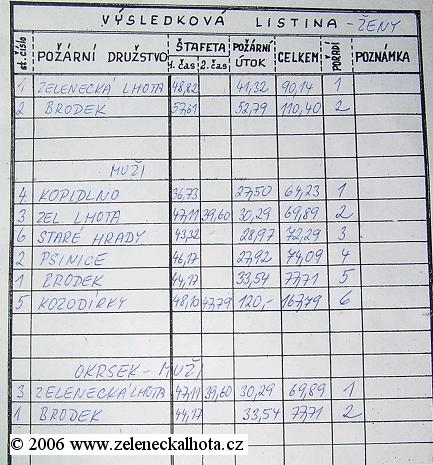 VÝSLEDKOVÁ LISTINA - ŽENY
st. číslo POŽÁRNÍ DRUŽSTVO ŠTAFETA 1. čas 2. čas POŽÁRNÍ ÚTOK CELKEM POŘADÍ POZNÁMKA
1 ZELENECKÁ LHOTA 48,82 41,32 90,14 1
2 BRODEK 57,61 52,79 110,40 2
MUŽI
4 KOPIDLNO 36,73 27,50 64,23 1
3 ZEL LHOTA 47,11 39,60 30,29 69,89 2
6 STARÉ HRADY 43,32 28,97 72,29 3
2 PSINICE 46,17 27,92 74,09 4
1 BRODEK 44,17 33,54 77,71 5
5 KOZODÍRKY 48,10 47,79 120,- 167,79 6
OKRSEK - MUŽI
3 ZELENECKÁ LHOTA 47,11 39,60 30,29 69,89 1
1 BRODEK 44,17 33,54 77,71 2
© 2006 www.zeleneckalhota.cz